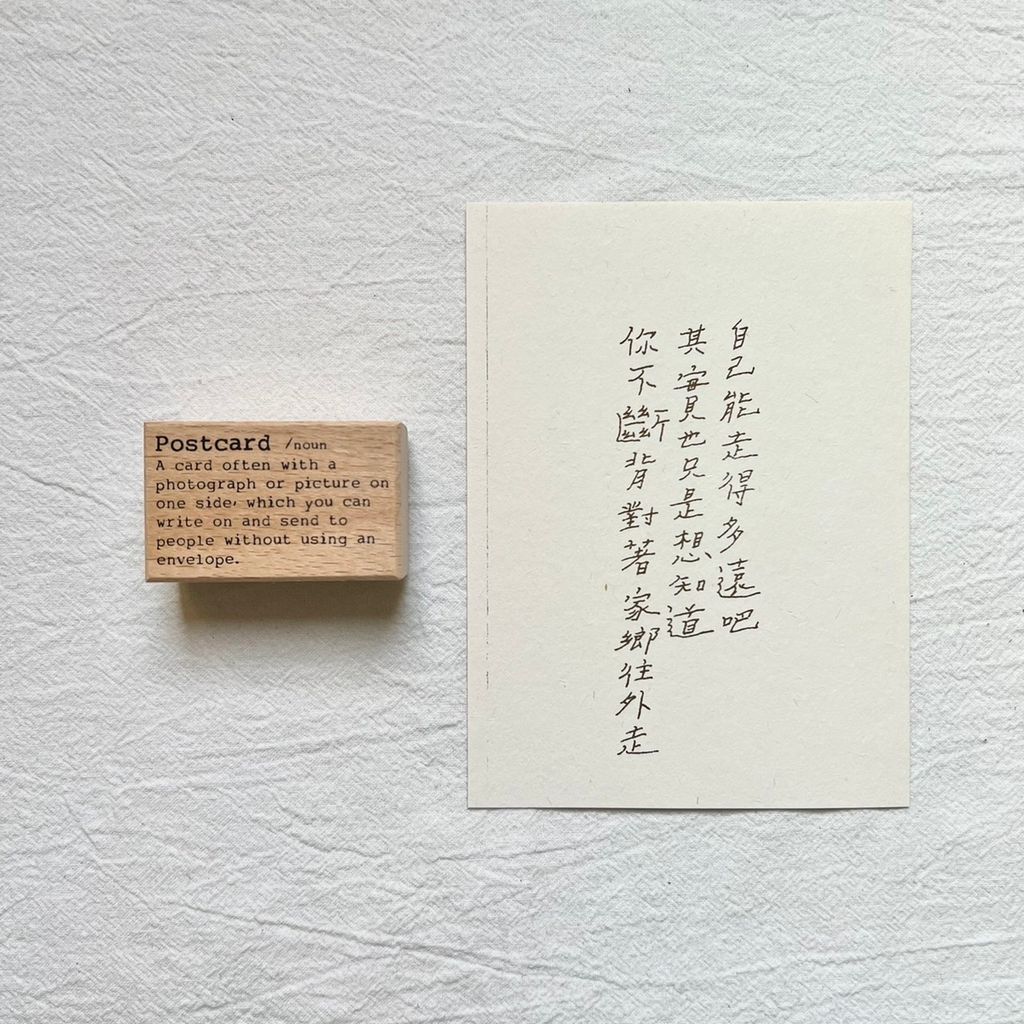 Postcard /noun
A card often with a
photograph or picture on
one side, which you can
write on and send to
people without using an
envelope.
你不斷背對著家鄉往外走
其實也只是想知道
自己能走得多遠吧